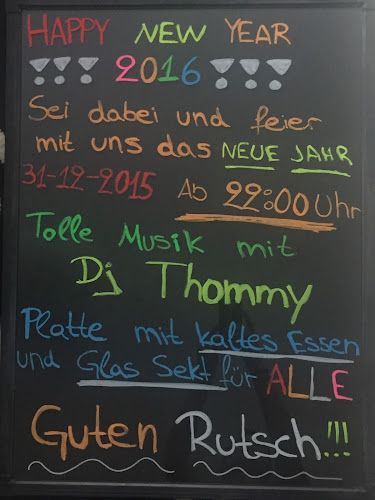 HAPPY NEW YEAR
!!! 2016 !!!
Sei dabei und feier
mit uns das NEUE JAHR
31-12-2015 Ab 22:00 Uhr
Tolle Musik mit
Dj Thommy
Platte mit kaltes Essen
und Glas Sekt für ALLE
Guten Rutsch!!!